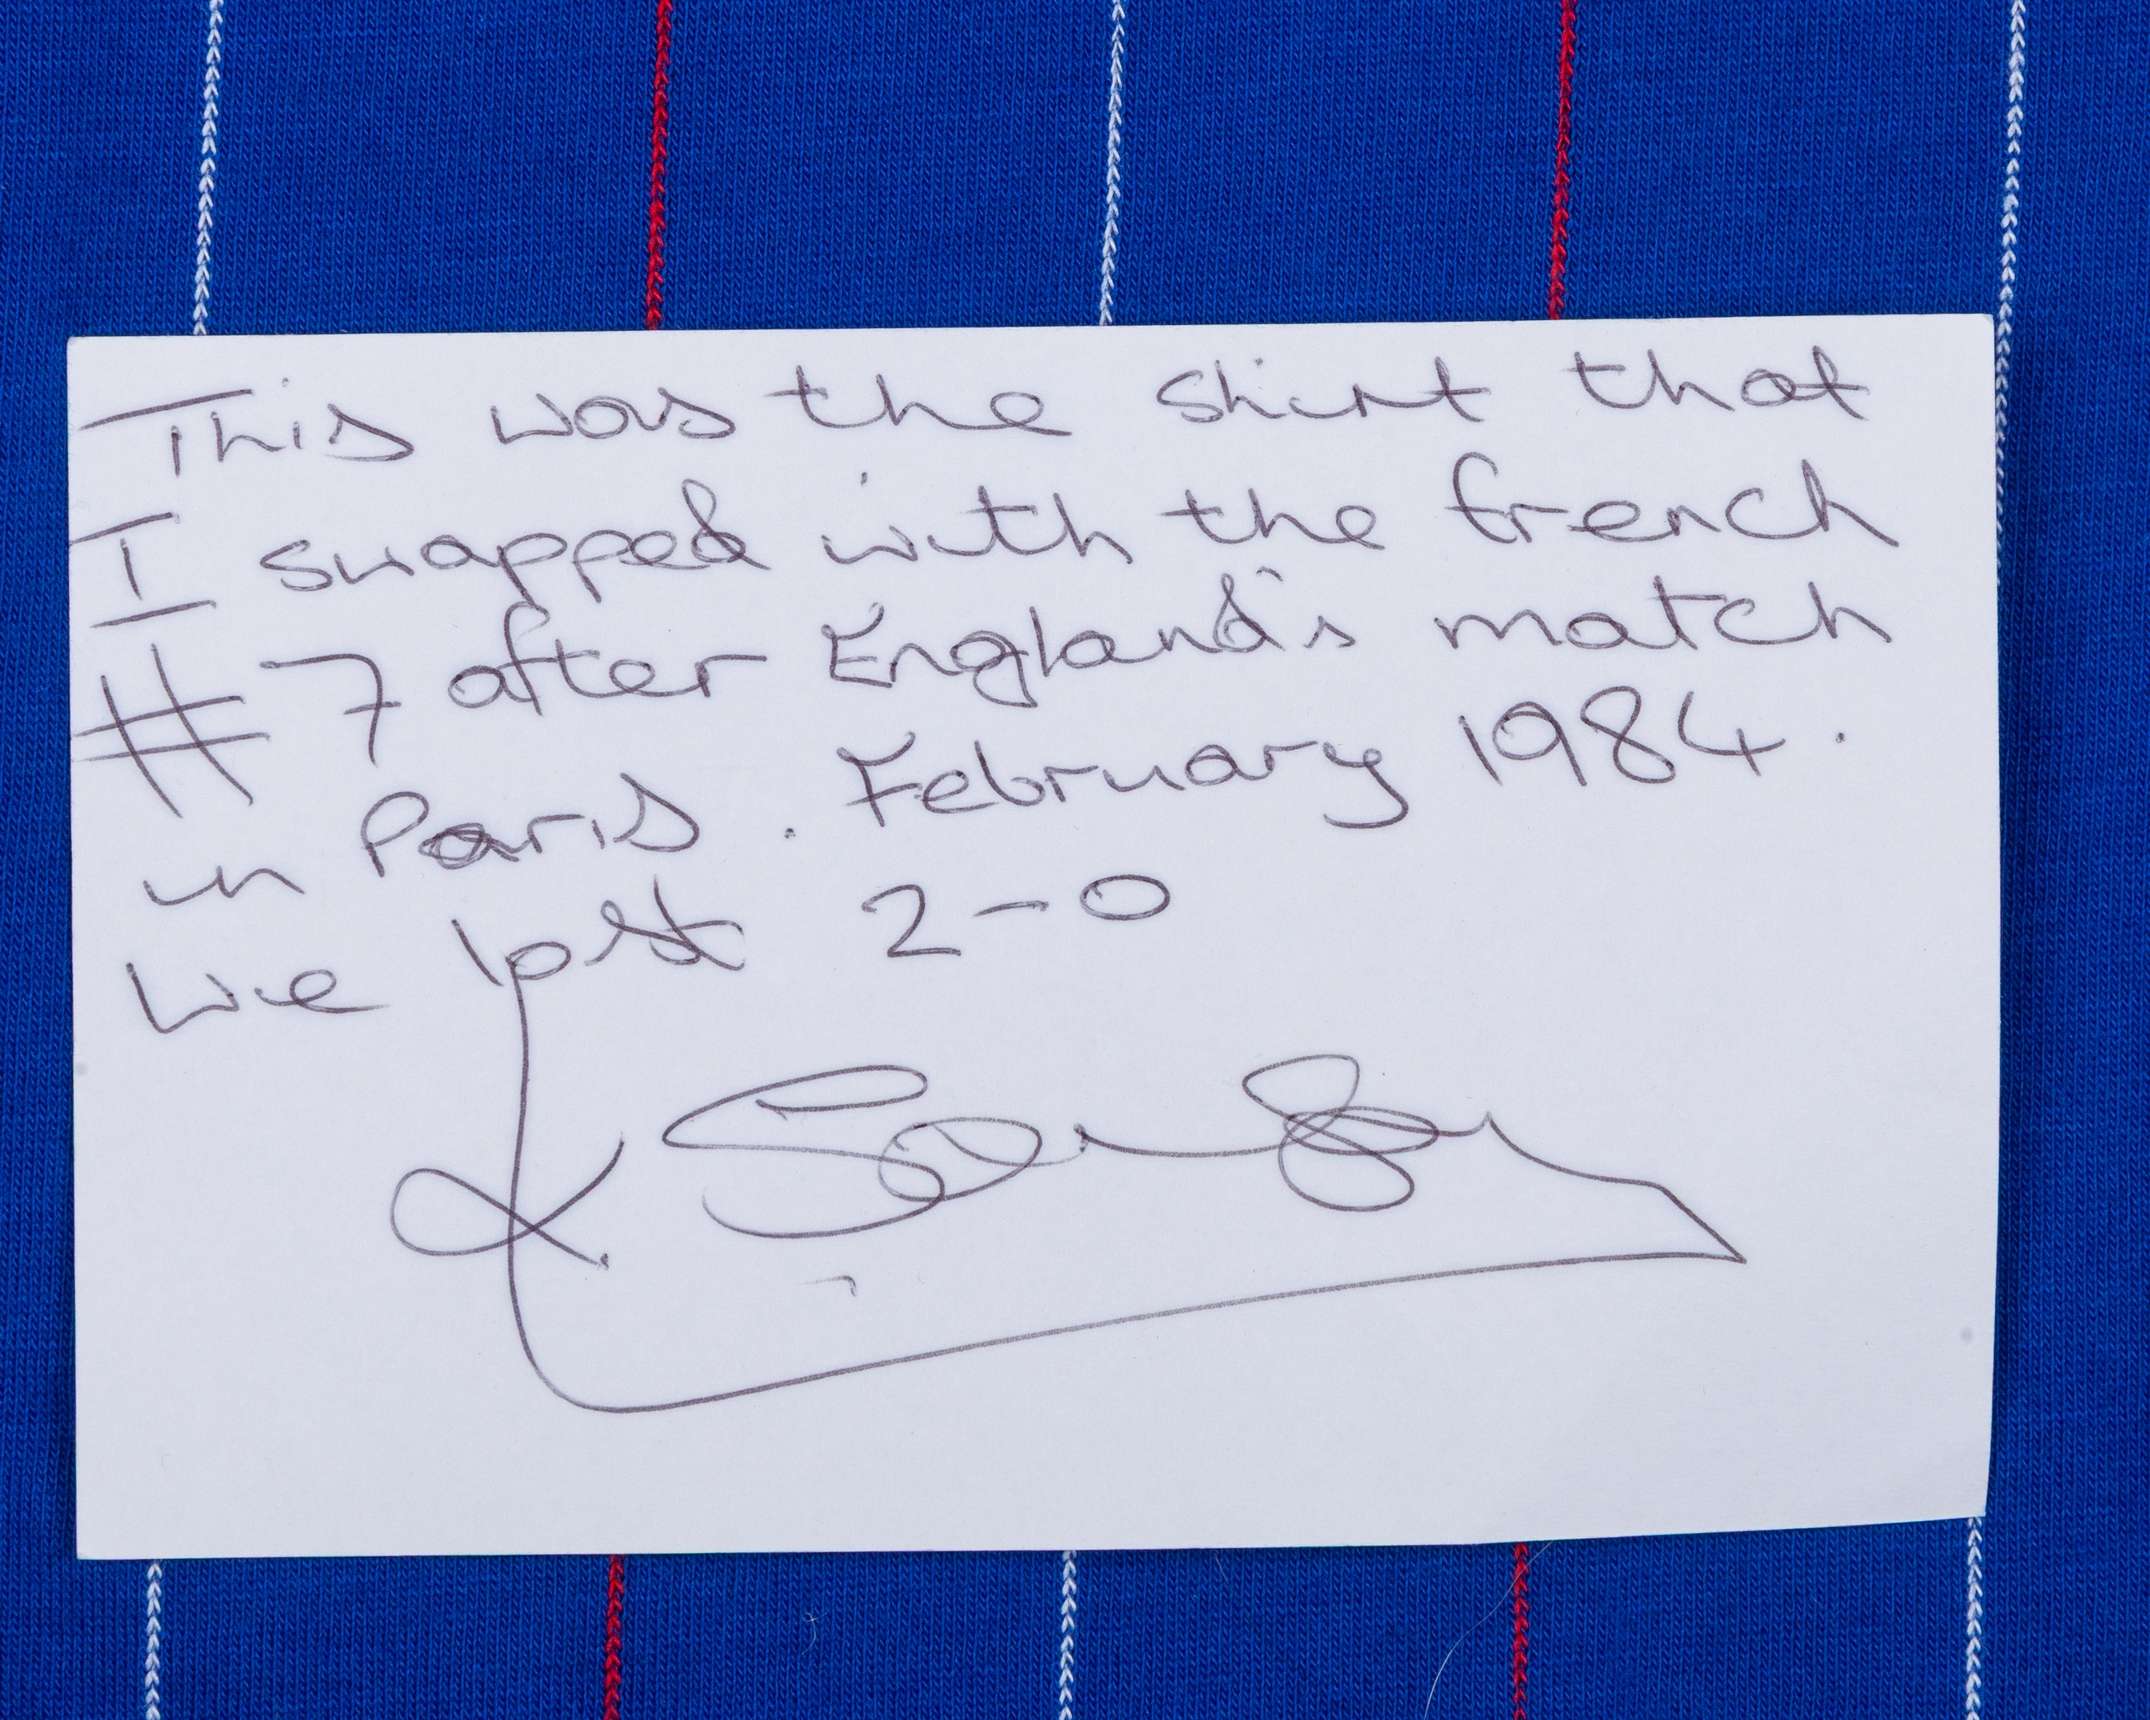 This was the shirt that
I swapped with the french
# 7 after England's match
in Paris. February 1984.
We lost 2-0
K. Sansom